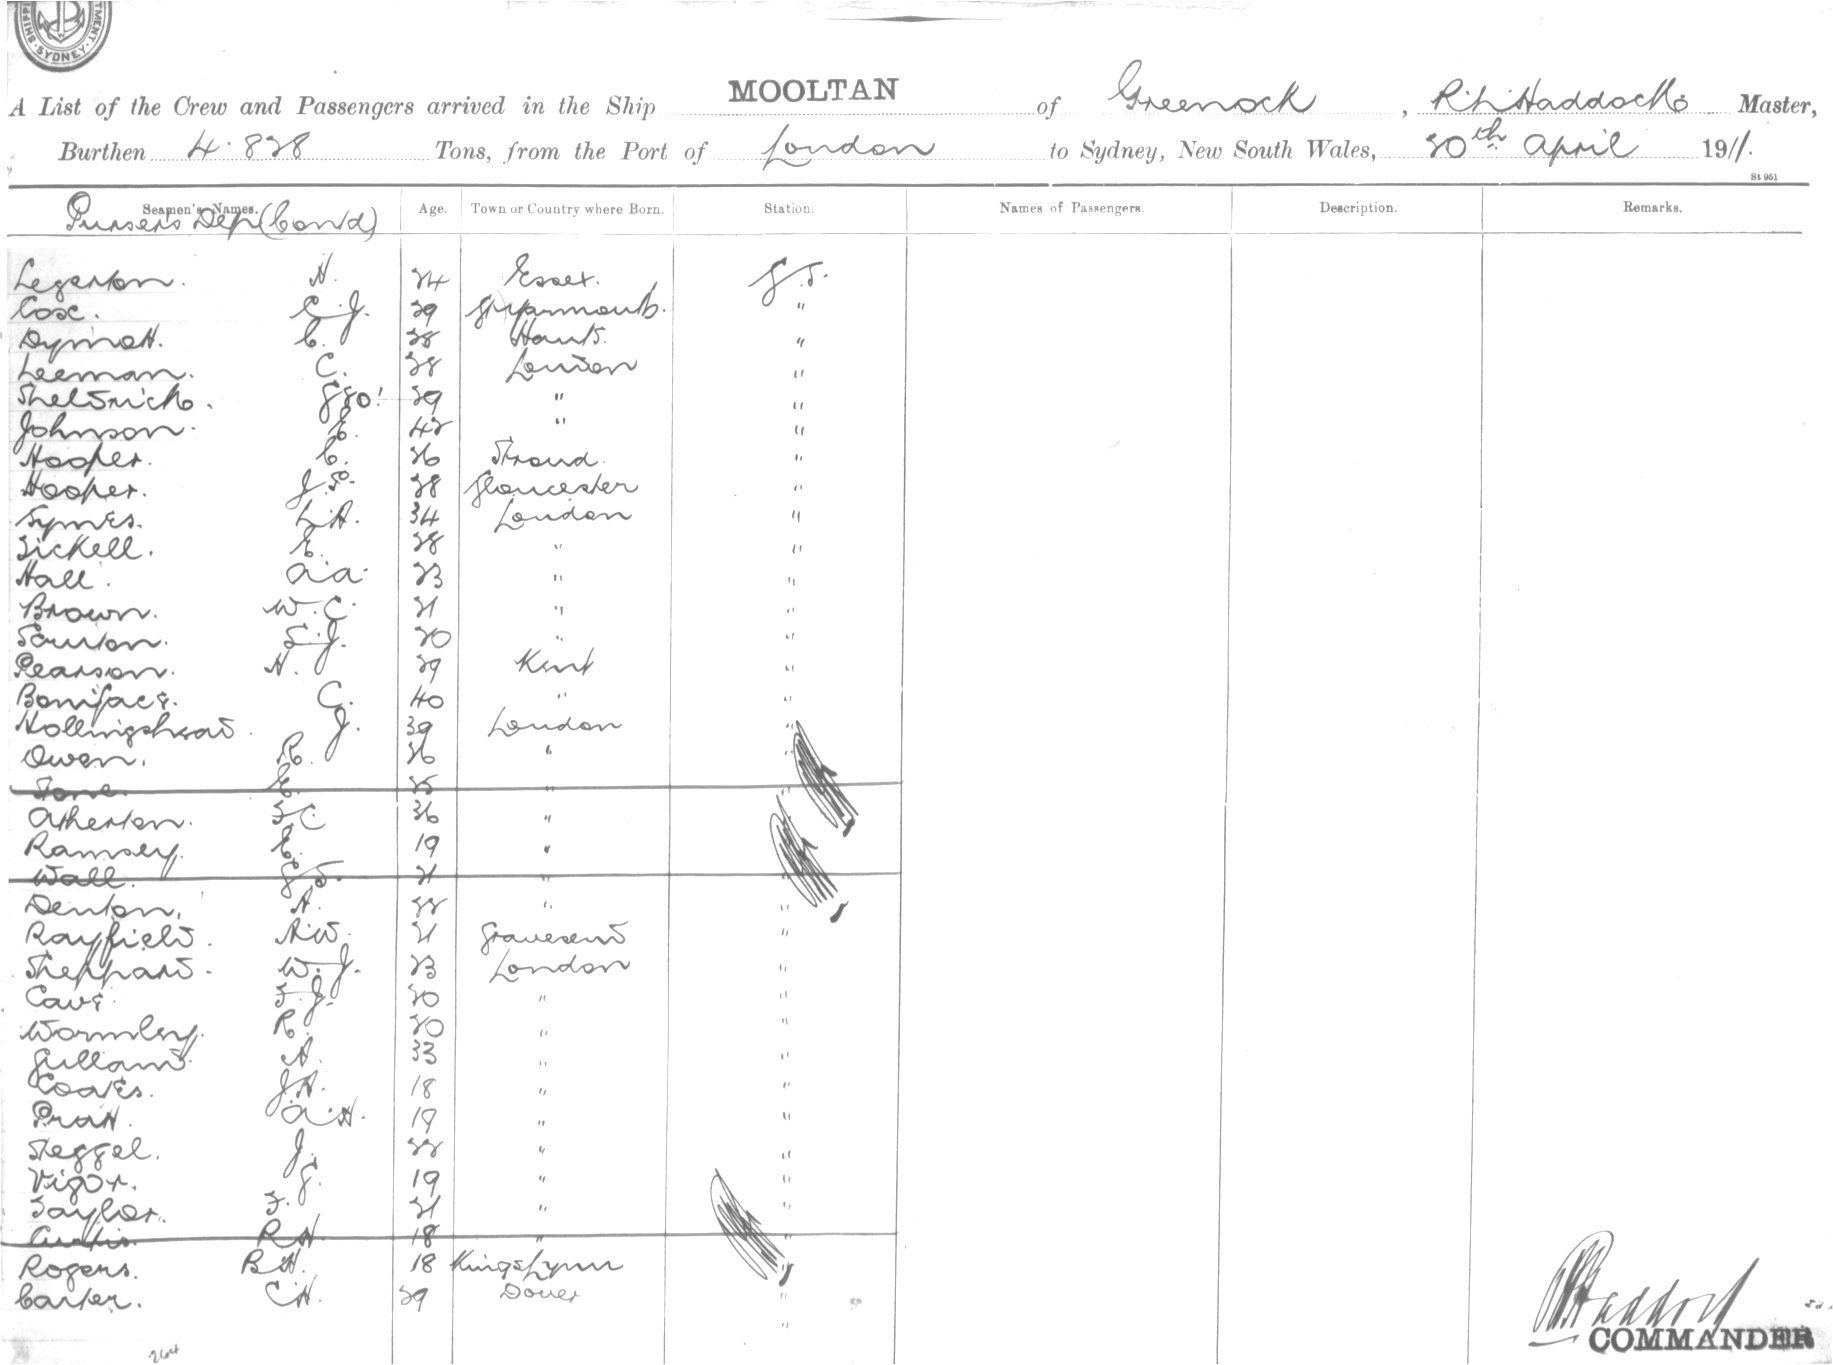 SHIPPI
SYDNEY
TMENT
A List of the Crew and Passengers arrived in the Ship MOOLTAN of Greenock, R. L. Haddock Master,
Burthen 4.828 Tons, from the Port of London to Sydney, New South Wales, 20th April 1911.
St 951
Seamen's Names. Age. Town or Country where Born. Station. Names of Passengers. Description. Remarks.
Pursers Dep (Contd)
Legerton. H. 24 Essex. G.S.
Cox. C. J. 29 Gt Yarmouth. "
Dymott. C. 28 Hants. "
Leeman. C. 28 London "
Sheldrick. Geo. 29 " "
Johnson. E. 42 " "
Hooper. C. 26 Stroud. "
Hooper. J. 28 Gloucester "
Symes. L.A. 34 London "
Tickell. E. 28 " "
Hall. A.A. 23 " "
Brown. W.C. 21 " "
J. 20 " "
Pearson. H. 29 Kent "
Boniface. C. 40 " "
Hollingshead. J. 39 London "
Owen. R. 26 " "
E. 25 " "
Atherton. F C 36 "
Ramsey. E. 19 "
Wall. G S. 21 " "
Denton. A. 22 " "
Rayfield. A.W. 21 Gravesend "
Sheppard. W.J. 23 London "
Cave. F.J. 20 " "
Wormley. R. 20 " "
Gulland. A. 33 " "
Coates. J.A. 18 " "
Pratt. A.H. 19 " "
Steggel. J. 22 " "
Vigor. G. 19 " "
Taylor. F. 21 "
Curtis. R H 18 "
Rogers. B H. 18 Kings Lynn "
Carter. C H. 29 Dover "
R L Haddock
COMMANDER
264